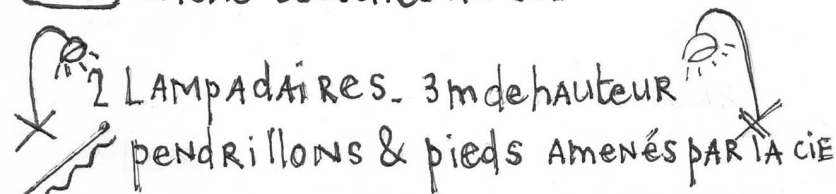 2 LAMpAdAiRes. 3m de hAuteuR
peNdRilloNs & pieds AmeNés pAR lA ciE